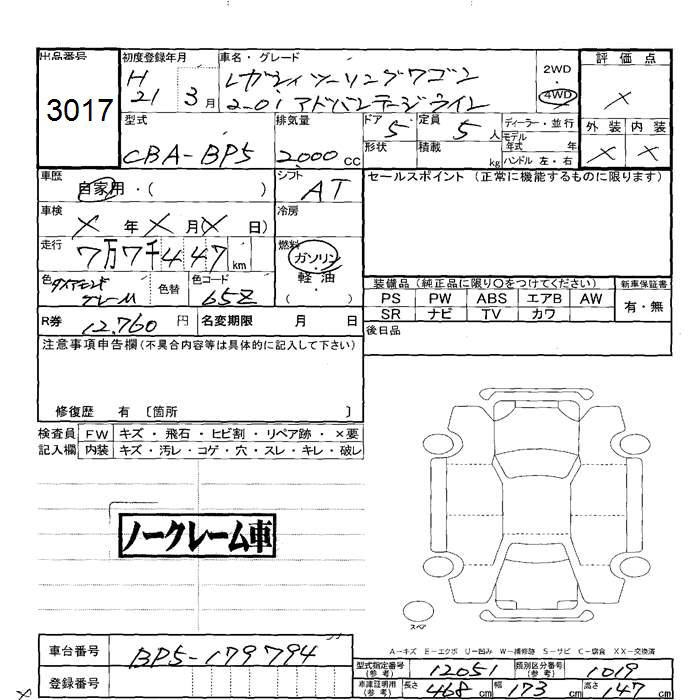 出品番号
3017
初度登録年月
H
21 3月
車名・グレード
レガシィツーリングワゴン
2.0i アドバンテージライン
2WD
4WD
評価点
×
外装 内装
× ×
型式
CBA-BP5
排気量
2000cc
ドア 5
定員 5人
形状
積載 kg
ディーラー・並行
モデル
年式 年
ハンドル 左・右
車歴
自家用・( )
シフト
AT
車検
×年×月(×日)
冷房
走行
7万7千447km
燃料
ガソリン
・
軽油
( )
色
ダイアモンド
グレーM
色替
色コード
65Z
R券 12,760円
名変期限 月 日
セールスポイント (正常に機能するものに限ります)
装備品(純正品に限り○をつけてください)
新車保証書
PS PW ABS エアB AW
SR ナビ TV カワ
有・無
後日品
注意事項申告欄(不具合内容等は具体的に記入して下さい)
修復歴 有 〔箇所 〕
検査員
記入欄
FW キズ・飛石・ヒビ割・リペア跡・×要
内装 キズ・汚レ・コゲ・穴・スレ・キレ・破レ
ノークレーム車
スペア
A-キズ E-エクボ U-凹み W-補修跡 S-サビ C-腐食 XX-交換済
車台番号 BP5-179794
登録番号
×
型式指定番号
(参考)
12051
類別区分番号
(参考)
1019
車庫証明用
(参考)
長さ 468cm 幅 173cm 高さ 147cm